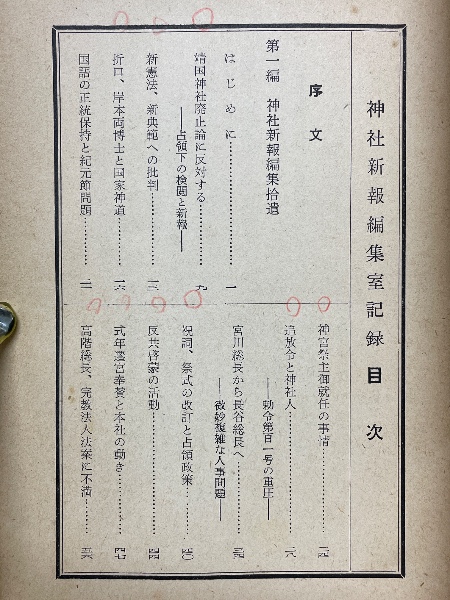 神社新報編集室記録 目次
序文
第一編 神社新報編集拾遺
はじめに…………一
靖国神社廃止論に反対する…………九
――占領下の検閲と新報――
新憲法、新典範への批判…………一三
折口、岸本両博士と国家神道…………一六
国語の正統保持と紀元節問題…………
神宮祭主御就任の事情…………二四
追放令と神社人…………二八
――勅令第百一号の重圧――
宮川総長から長谷総長へ…………
――微妙複雑な人事問題――
祝詞、祭式の改訂と占領政策…………四〇
反共啓蒙の活動…………四四
式年遷宮奉賛と本社の動き…………四七
高階総長、宗教法人法案に不満…………